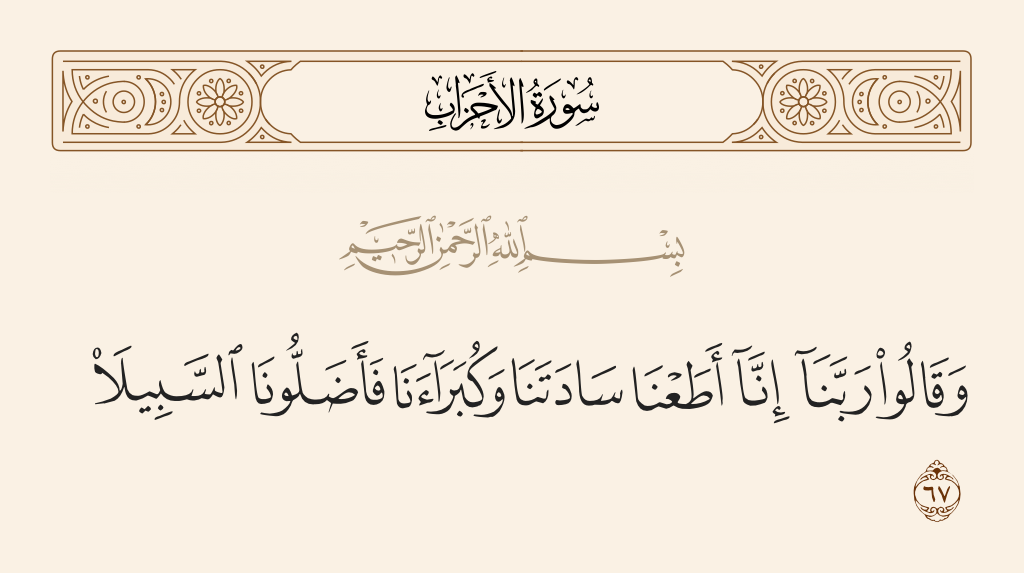 سُورَةُ الأَحْزَابِ
بِسْمِ ٱللَّهِ ٱلرَّحْمَٰنِ ٱلرَّحِيمِ
وَقَالُوا۟ رَبَّنَآ إِنَّآ أَطَعْنَا سَادَتَنَا وَكُبَرَآءَنَا فَأَضَلُّونَا ٱلسَّبِيلَا۠
٦٧